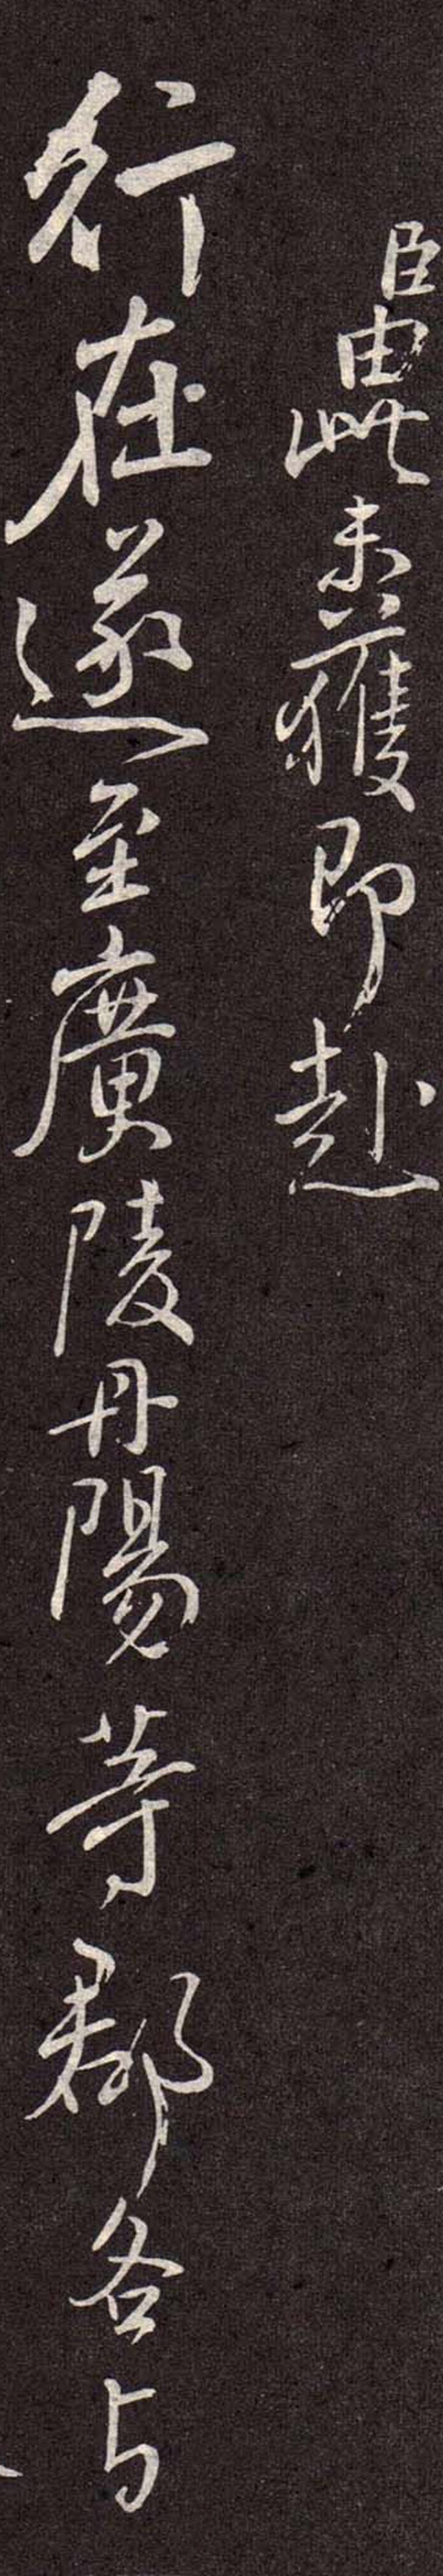 臣由此未獲即赴
行在遂至廣陵丹陽等郡各与